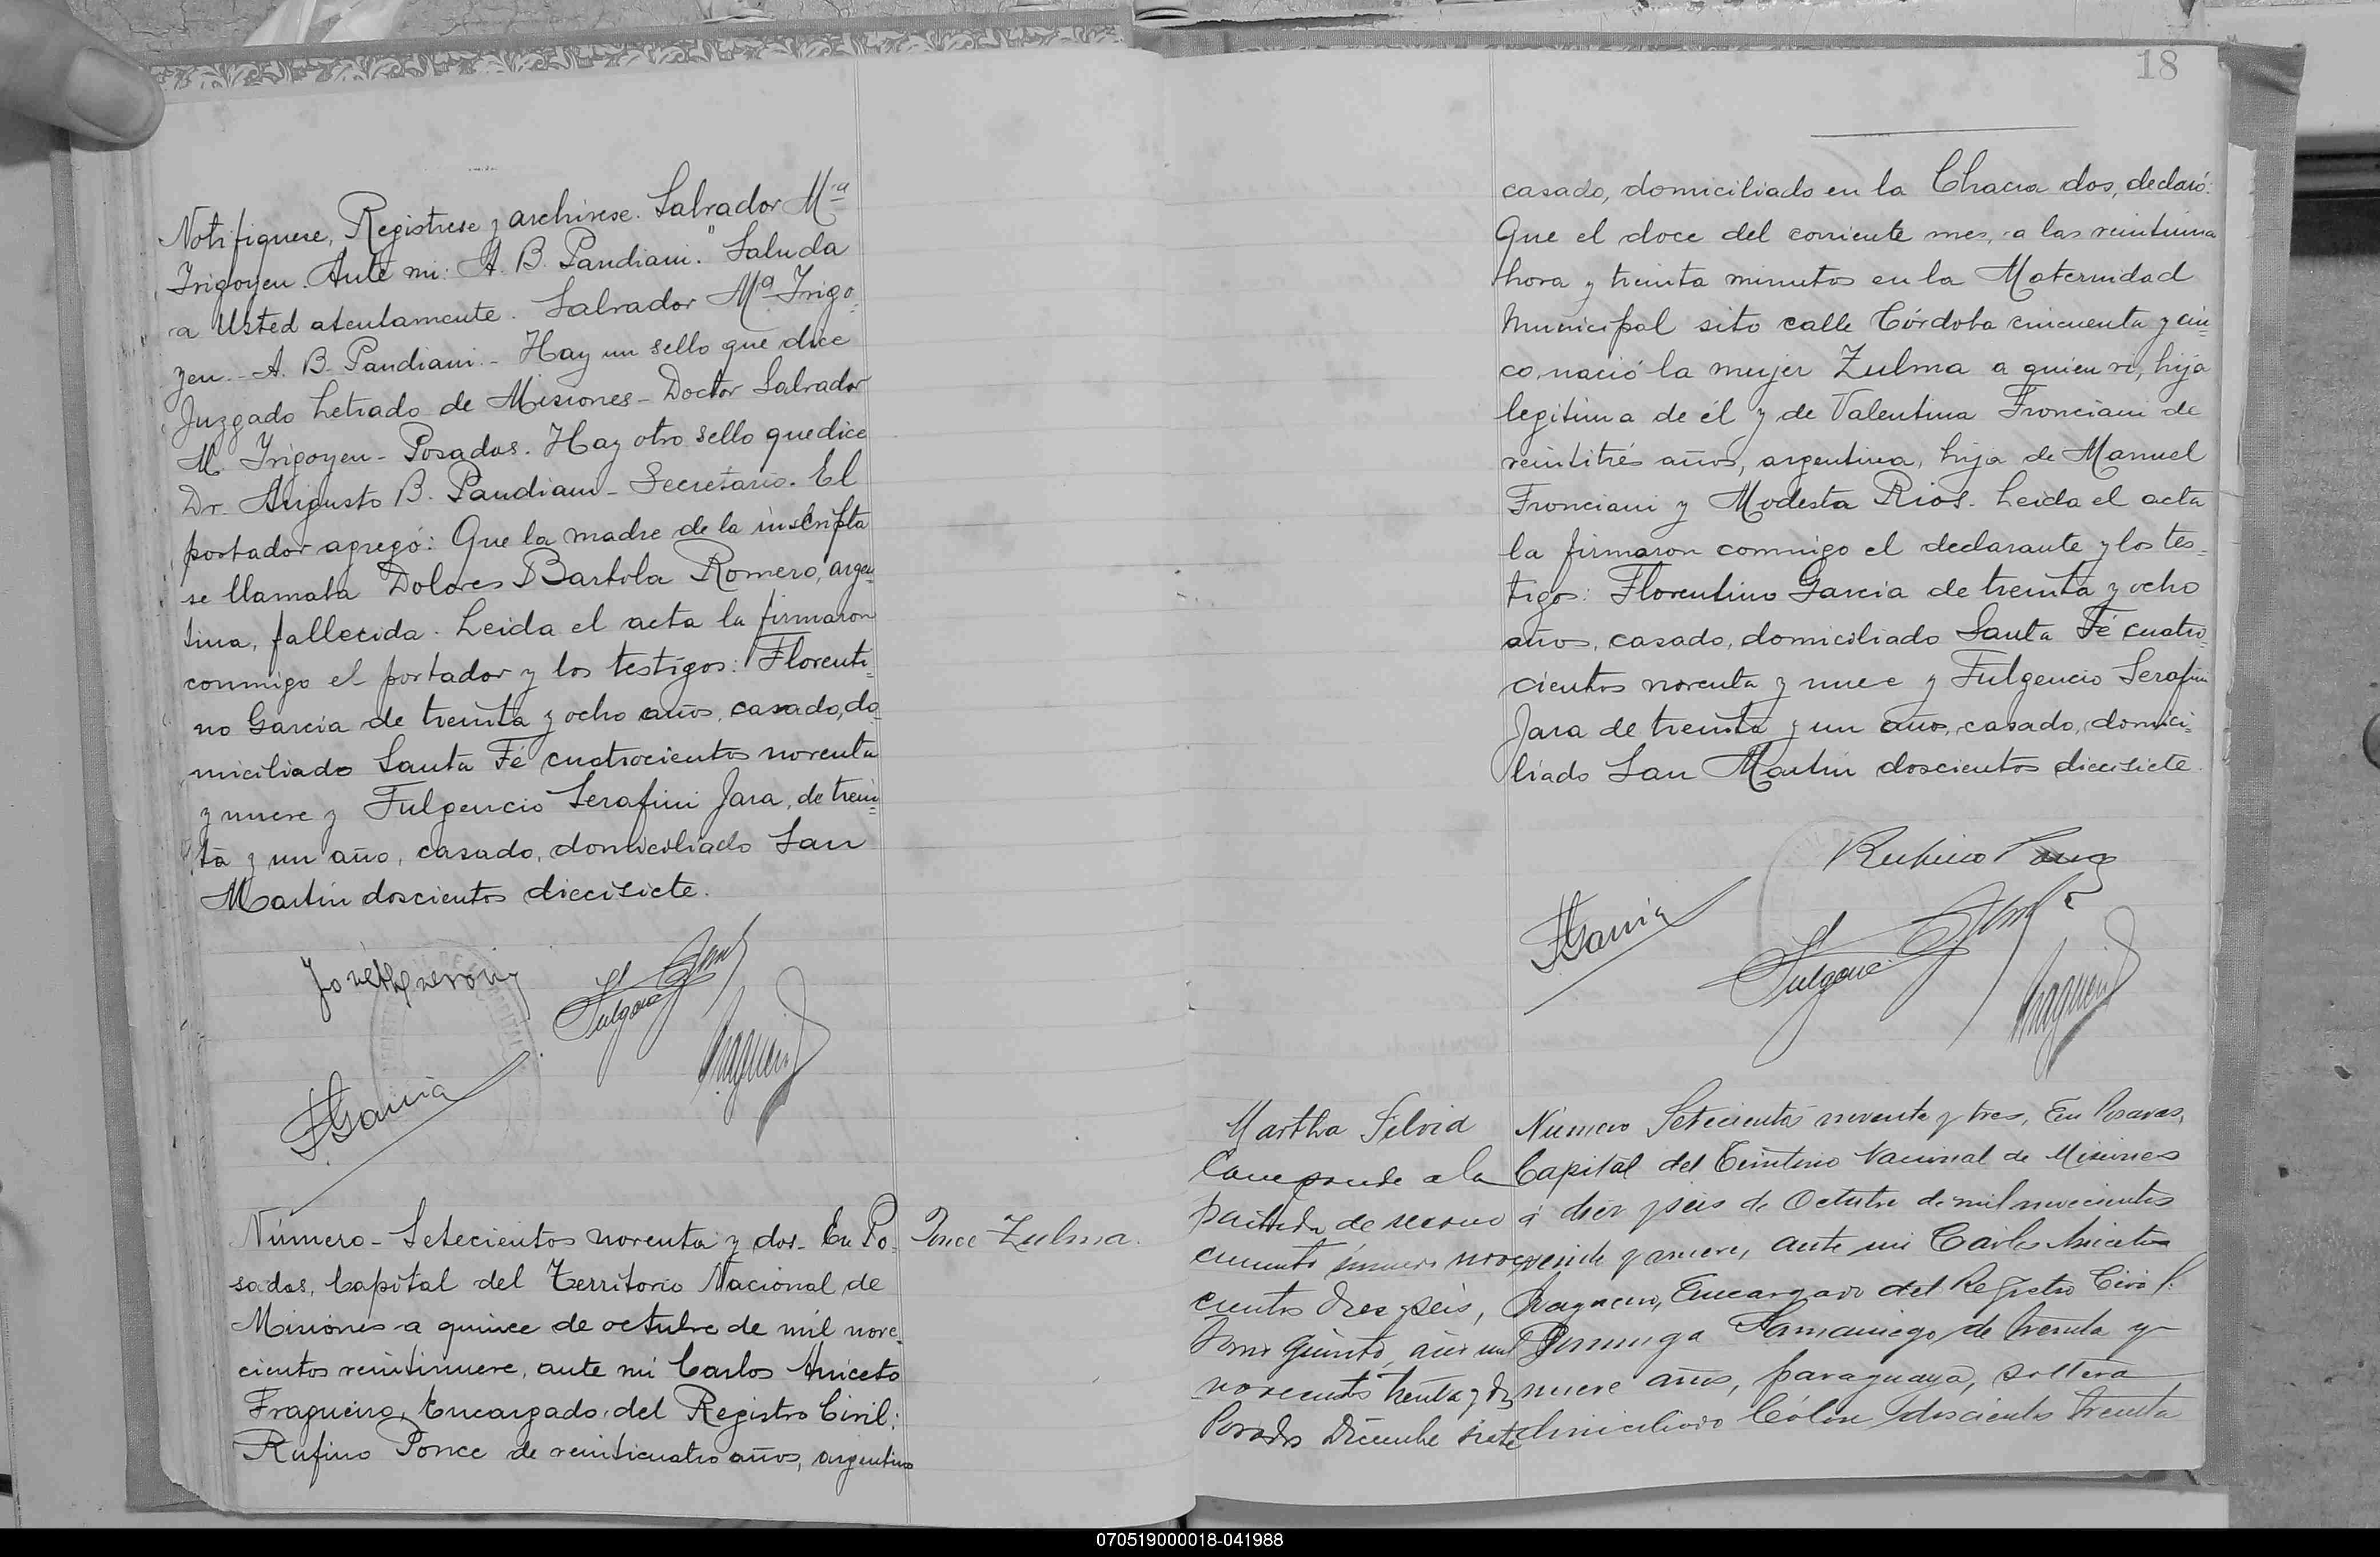 Notifíquese, Regístrese y archívese. Salvador Mª
Irigoyen. Ante mi: A. B. Pandiani." Saluda
a Usted atentamente. Salvador Mª Irigo-
yen.- A. B. Pandiani.- Hay un sello que dice
Juzgado Letrado de Misiones - Doctor Salvador
M. Irigoyen - Posadas. Hay otro sello que dice
Dr. Augusto B. Pandiani - Secretario. El
portador agregó: Que la madre de la inscripta
se llamaba Dolores Bartola Romero, argen-
tina, fallecida. Leida el acta la firmaron
conmigo el portador y los testigos: Florenti-
no García de treinta y ocho años, casado, do-
miciliado Santa Fé cuatrocientos noventa
y nueve y Fulgencio Serafini Jara, de trein-
ta y un año, casado, domiciliado San
Martín doscientos diecisiete.
FGarcia
Número - Setecientos noventa y dos. En Po-
sadas, Capital del Territorio Nacional de
Misiones a quince de octubre de mil nove-
cientos veintinueve, ante mi Carlos Aniceto
Fragueiro, Encargado del Registro Civil:
Rufino Ponce de veinticuatro años, argentino
Ponce Zulma.
18
casado, domiciliado en la Chacra dos, declaró:
Que el doce del corriente mes, a las veintiuna
hora y treinta minutos en la Maternidad
Municipal sito calle Córdoba cincuenta y cin-
co, nació la mujer Zulma a quien ví, hija
legítima de él y de Valentina Fronciani de
veintitrés años, argentina, hija de Manuel
Fronciani y Modesta Rios. Leida el acta
la firmaron conmigo el declarante y los tes-
tigos: Florentino García de treinta y ocho
años, casado, domiciliado Santa Fé cuatro-
cientos noventa y nueve y Fulgencio Serafin
Jara de treinta y un año, casado, domici-
liado San Martín doscientos diecisiete.
Rufino Ponce
FGarcia
Martha Silvia
Corresponde a la
partida de recono
cimiento número nove
cientos diez y seis,
Tomo quinto, año mil
novecientos treinta y dos
Posadas Diciembre siete
Número Setecientos noventa y tres, En Posadas,
Capital del Territorio Nacional de Misiones
á diez y seis de Octubre de mil novecientos
veinte y nueve, ante mi Carlos Aniceto
Fragueiro, Encargado del Registro Civil:
Dominga Samaniego de treinta y
nueve años, paraguaya, soltera
domiciliado Colón doscientos treinta
070519000018-041988